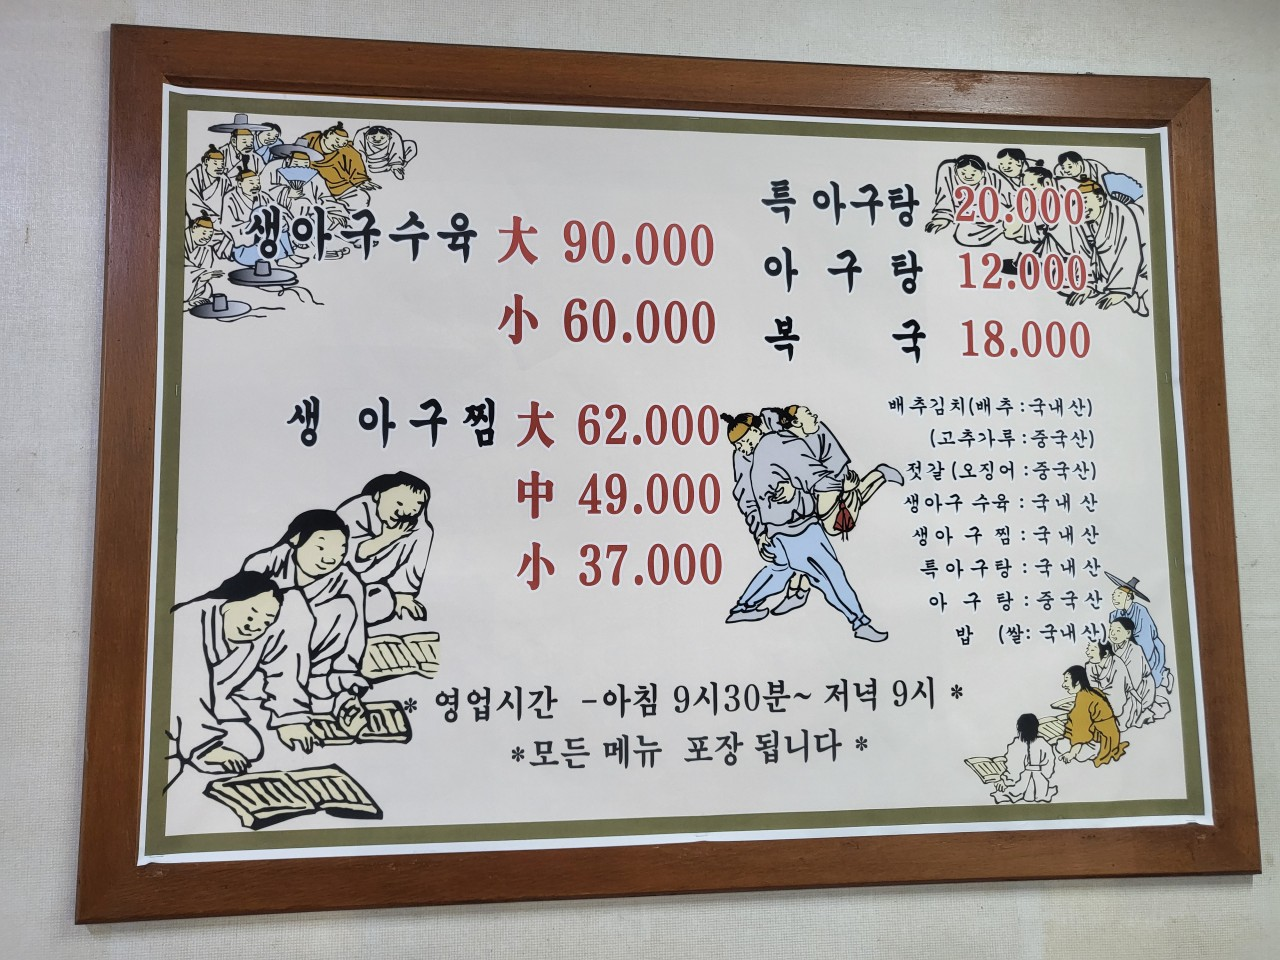 생아구수육 大 90.000
小 60.000
생 아구찜 大 62.000
中 49.000
小 37.000
특 아구탕 20.000
아 구 탕 12.000
복 국 18.000
배추김치(배추:국내산)
(고추가루:중국산)
젓갈(오징어:중국산)
생아구 수육 : 국내산
생아 구 찜 : 국내산
특아구탕 : 국내산
아 구 탕 : 중국산
밥 (쌀: 국내산)
* 영업시간 -아침 9시30분~ 저녁 9시 *
*모든 메뉴 포장 됩니다 *